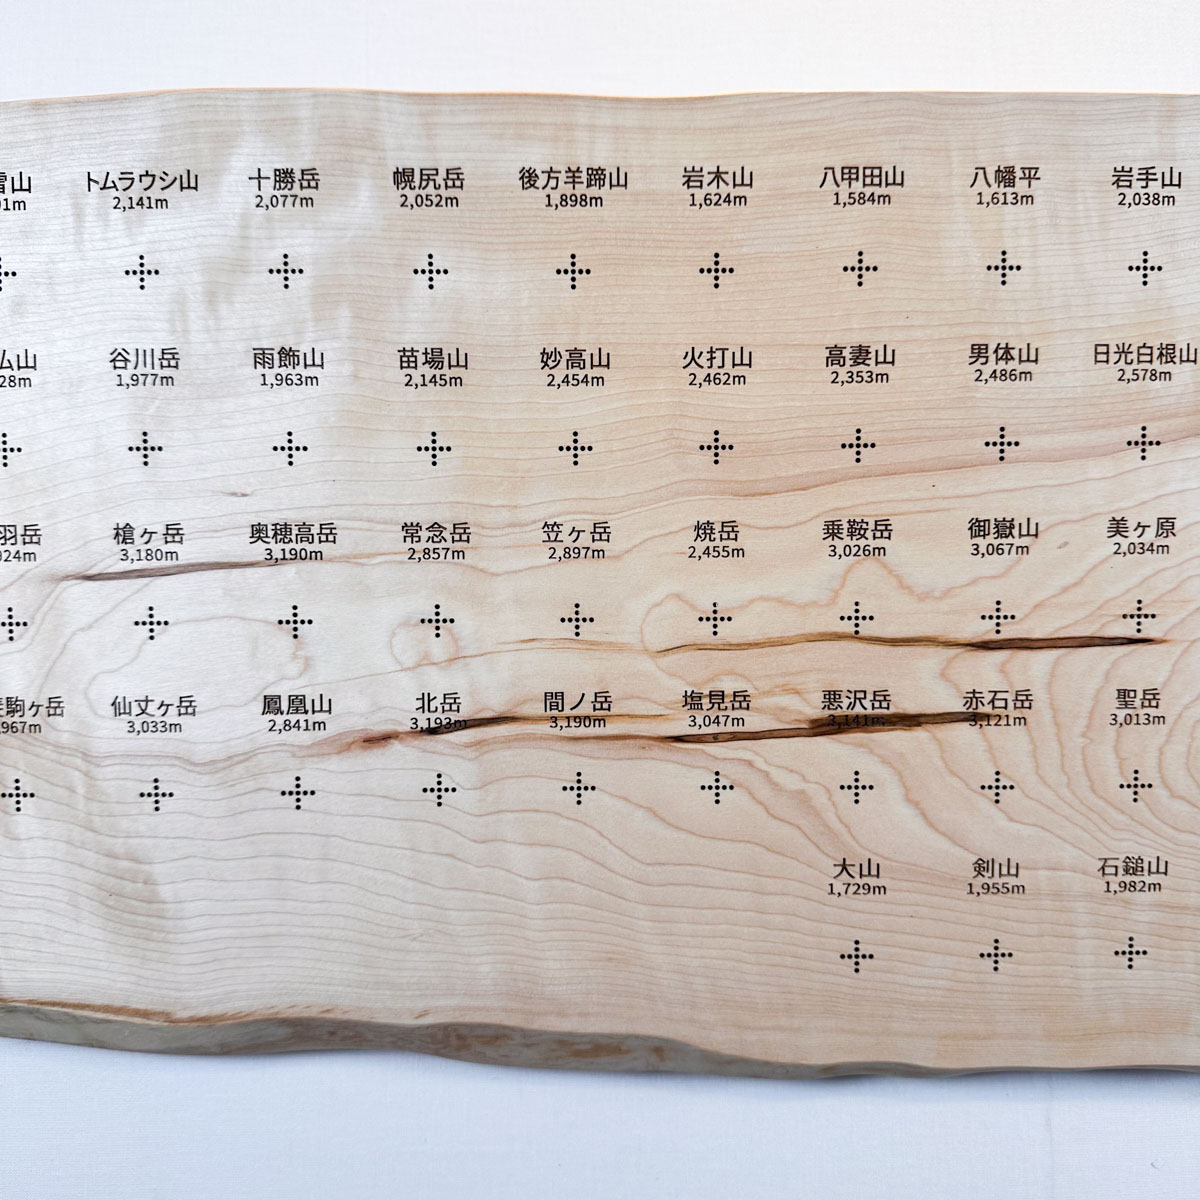 雪山 トムラウシ山 十勝岳 幌尻岳 後方羊蹄山 岩木山 八甲田山 八幡平 岩手山
91m 2,141m 2,077m 2,052m 1,898m 1,624m 1,584m 1,613m 2,038m
山 谷川岳 雨飾山 苗場山 妙高山 火打山 高妻山 男体山 日光白根山
28m 1,977m 1,963m 2,145m 2,454m 2,462m 2,353m 2,486m 2,578m
羽岳 槍ヶ岳 奥穂高岳 常念岳 笠ヶ岳 焼岳 乗鞍岳 御嶽山 美ヶ原
924m 3,180m 3,190m 2,857m 2,897m 2,455m 3,026m 3,067m 2,034m
駒ヶ岳 仙丈ヶ岳 鳳凰山 北岳 間ノ岳 塩見岳 悪沢岳 赤石岳 聖岳
967m 3,033m 2,841m 3,193m 3,190m 3,047m 3,141m 3,121m 3,013m
大山 剣山 石鎚山
1,729m 1,955m 1,982m